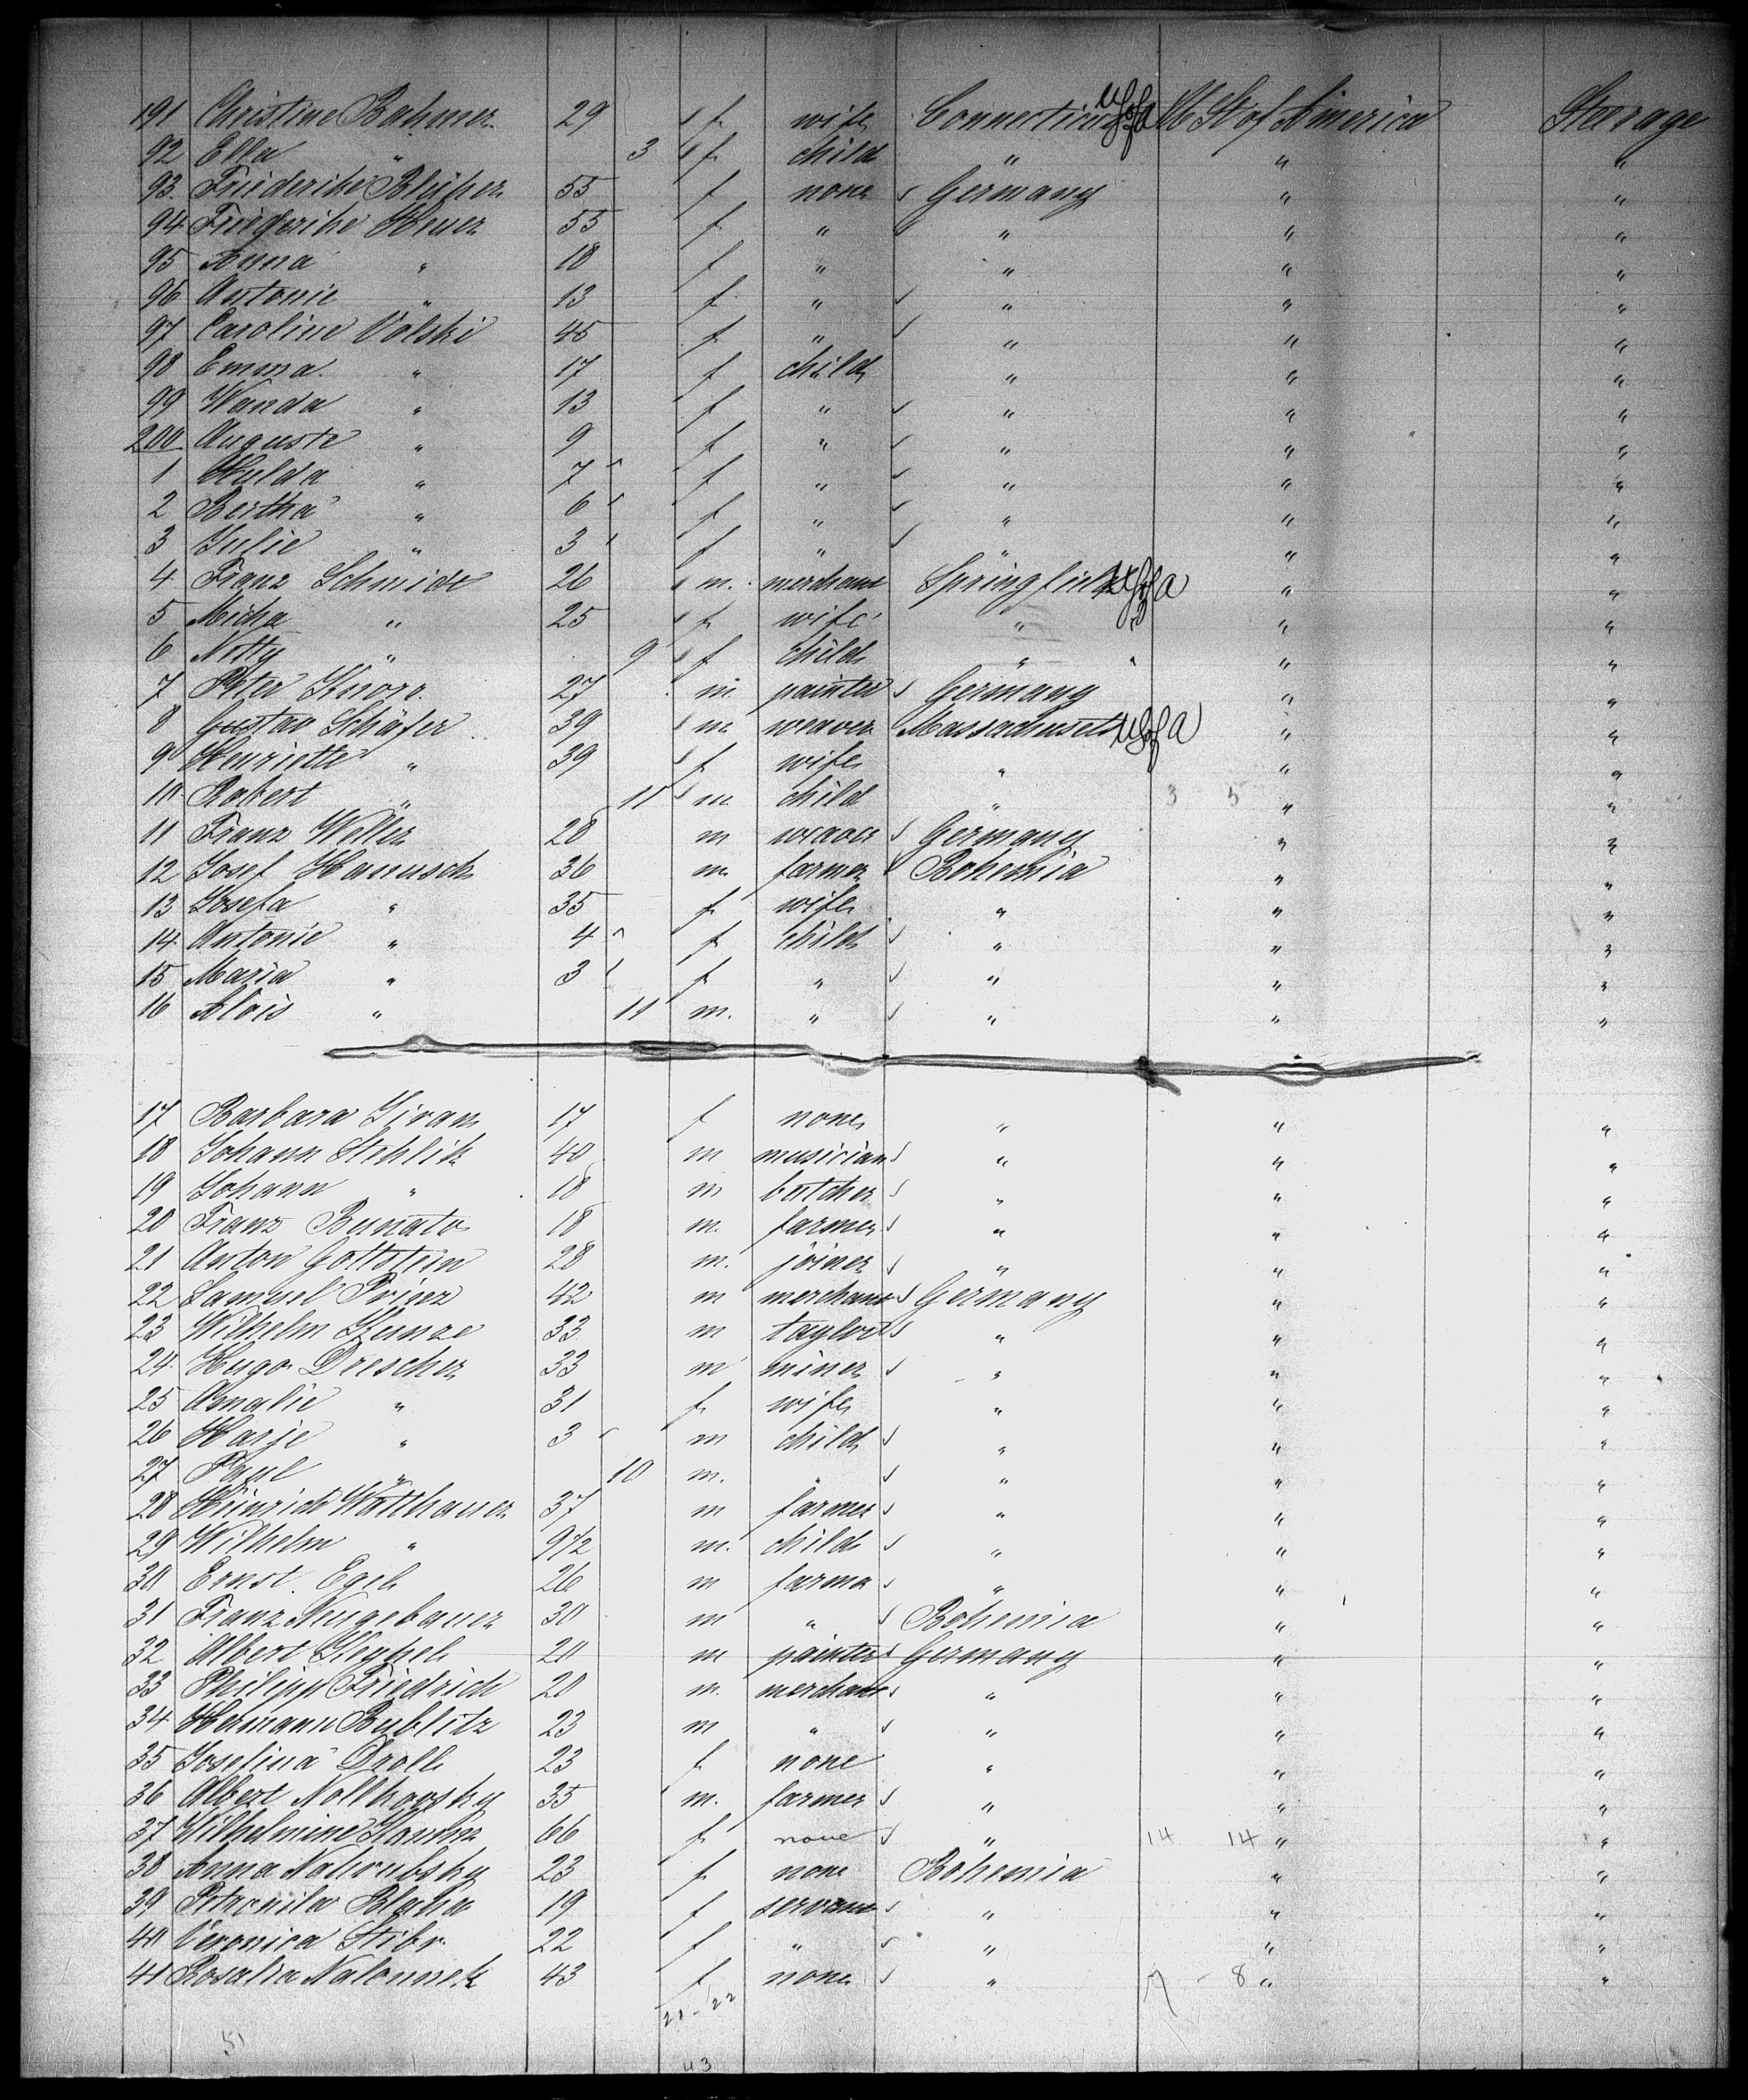 191 Christine Bahmer 29 f wife Connecticut USofA U St of America Steerage
92 Ella " 3 f child " " "
93 Friederike Blüher 55 f none Germany " "
94 Friederike Heuer 55 f " " " "
95 Anna " 18 f " " " "
96 Antonie " 13 f " " " "
97 Caroline Volski 45 f " " " "
98 Emma " 17 f child " " "
99 Wanda " 13 f " " " "
200 Auguste " 9 f " " " "
1 Hulda " 7 f " " " "
2 Bertha " 6 f " " " "
3 Julie " 3 f " " " "
4 Franz Schmidt 26 m. merchant Springfield USofA " "
5 Micha " 25 f wife " " " "
6 Netty " 9 f child " " " "
7 Peter Knorr 27 m painter Germany " "
8 Gustav Schäfer 39 m weaver Massachusetts USofA " "
9 Henriette " 39 f wife " " "
10 Robert " 11 m child " 3 5 " "
11 Franz Weller 28 m weaver Germany " "
12 Josef Hanusch 36 m farmer Bohemia " "
13 Josefa " 35 f wife " " "
14 Antonie " 4 f child " " "
15 Maria " 3 f " " " "
16 Alois " 11 m. " " " "
17 Barbara 17 f none " " "
18 Johann Stehlik 40 m musician " " "
19 Johann " 18 m butcher " " "
20 Franz 18 m. farmer " " "
21 Anton Gottstein 28 m. joiner " " "
22 Samuel Prinz 42 m merchant Germany " "
23 Wilhelm Kunze 33 m taylor " " "
24 Hugo Drescher 33 m miner " " "
25 Amalie " 31 f wife " " "
26 " 3 m child " " "
27 Paul " 10 m. " " " "
28 Heinrich 37 m farmer " " "
29 Wilhelm " 9 1/2 m. child " " "
30 Ernst 26 m farmer " " "
31 Franz Neugebauer 30 m " Bohemia " "
32 Albert 20 m painter Germany " "
33 Philipp Friedrich 20 m. merchant " " "
34 Hermann Bublitz 23 m " " " "
35 Josefina Droll 23 f none " " "
36 Albert 35 m. farmer " " "
37 Wilhelmine 66 f none " 14 14 " "
38 Anna 23 f none Bohemia " "
39 Petronila Blaha 19 f servant " " "
40 Veronica Stibr 22 f " " " "
41 Rosalia 43 f none " 7 - 8 " "
21 - 22
51
43